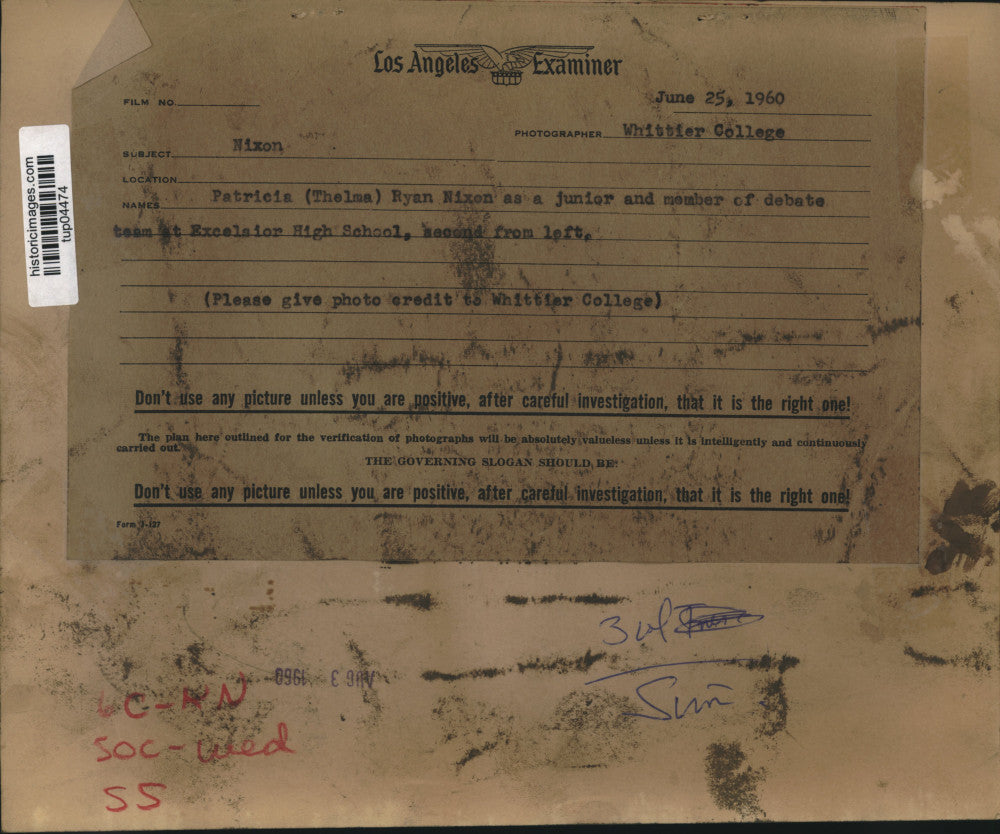 Los Angeles Examiner
FILM NO.
June 25, 1960
PHOTOGRAPHER Whittier College
SUBJECT Nixon
LOCATION
NAMES Patricia (Thelma) Ryan Nixon as a junior and member of debate
team at Excelsior High School, second from left.
(Please give photo credit to Whittier College)
Don't use any picture unless you are positive, after careful investigation, that it is the right one!
The plan here outlined for the verification of photographs will be absolutely valueless unless it is intelligently and continuously
carried out.
THE GOVERNING SLOGAN SHOULD BE:
Don't use any picture unless you are positive, after careful investigation, that it is the right one!
Form J-127
historicimages.com
tup04474
3 col
Sun
AUG 3 1960
SOC-Wed
SS